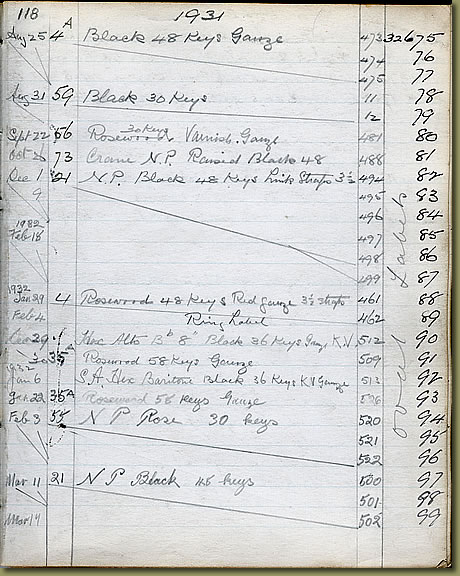 118 1931
Aug 25 4 A Black 48 Keys Gauze 473 32675
474 76
475 77
Aug 31 59 Black 30 Keys 11 78
12 79
Sept 22 56 Rosewood 30 Keys Varnish. Gauze 481 80
Oct 73 Crane N.P. Raised Black 48 488 81
Dec 1 21 N.P. Black 48 Keys Link Straps 3½ 494 82
9 495 83
496 84
Feb 18 497 85
498 86
499 87
1932
Jan 29 4 Rosewood 48 Keys Red gauze 3½ straps 461 88
Feb 4 Ring Label 462 89
Hex Alto Bb 8 Black 36 Keys 512 90
35 Rosewood 58 Keys Gauze 509 91
Jan 6 S.A. Hex Baritone Black 36 Keys K.V Gauze 513 92
Jan 22 35A Rosewood 58 Keys Gauze 526 93
Feb 3 55 N P Rose 30 Keys 520 94
521 95
522 96
Mar 11 21 N P Black 45 keys 500 97
501 98
Mar 17 502 99
oval Labels